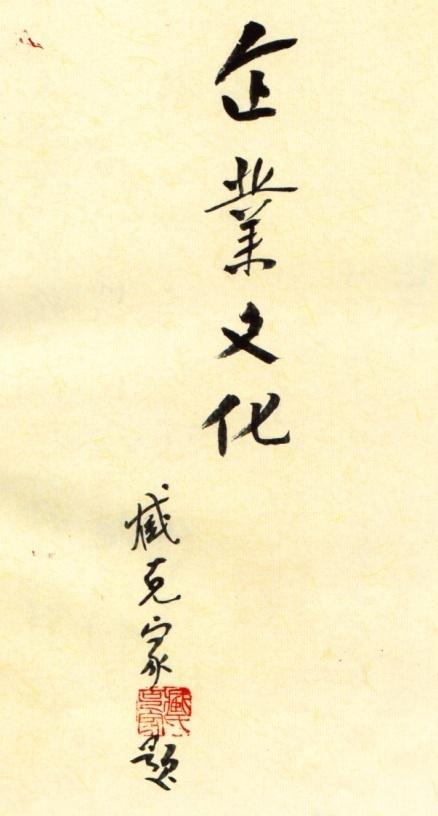 企業文化
臧克家題